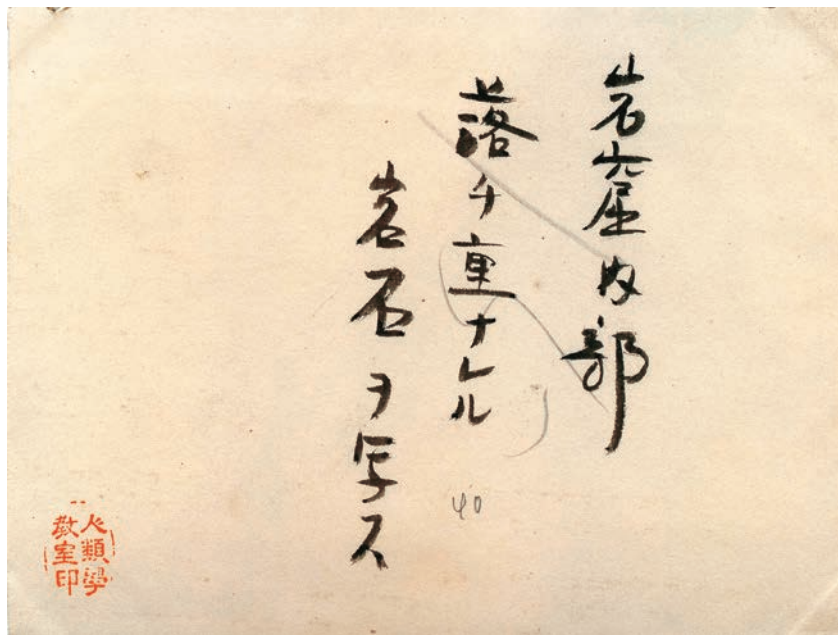 岩窟内部
落チ重ナレル
岩石ヲ写ス
40
人類學
教室印